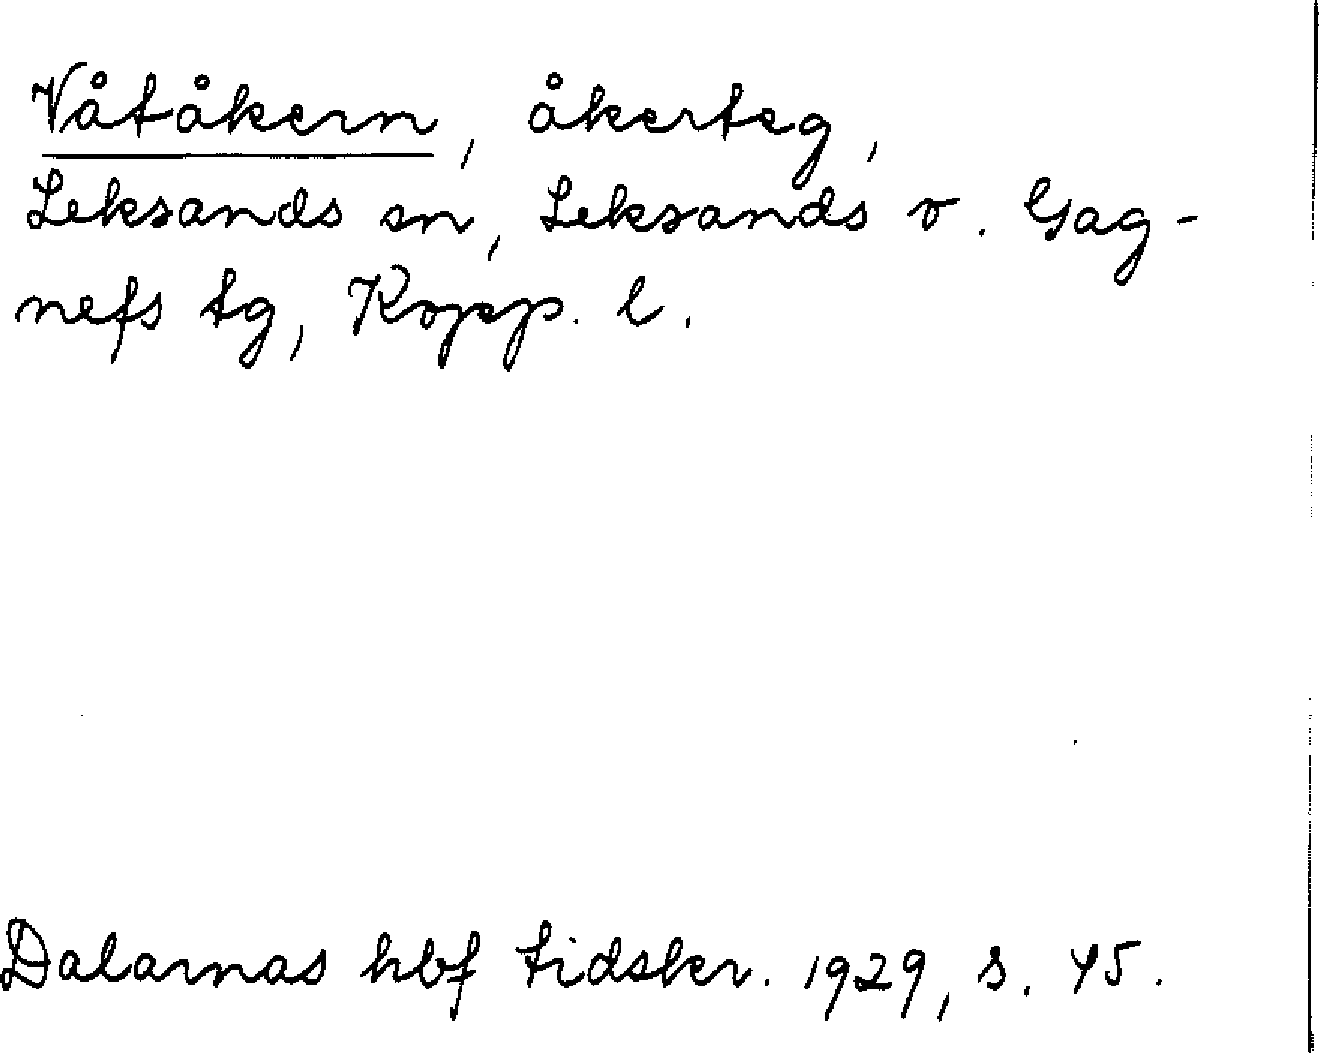 Våtåkern, åkerteg,
Leksands sn, Leksands o. Gag-
nefs tg, Kopp. l.
Dalarnas hbf tidskr. 1929, s. 45.